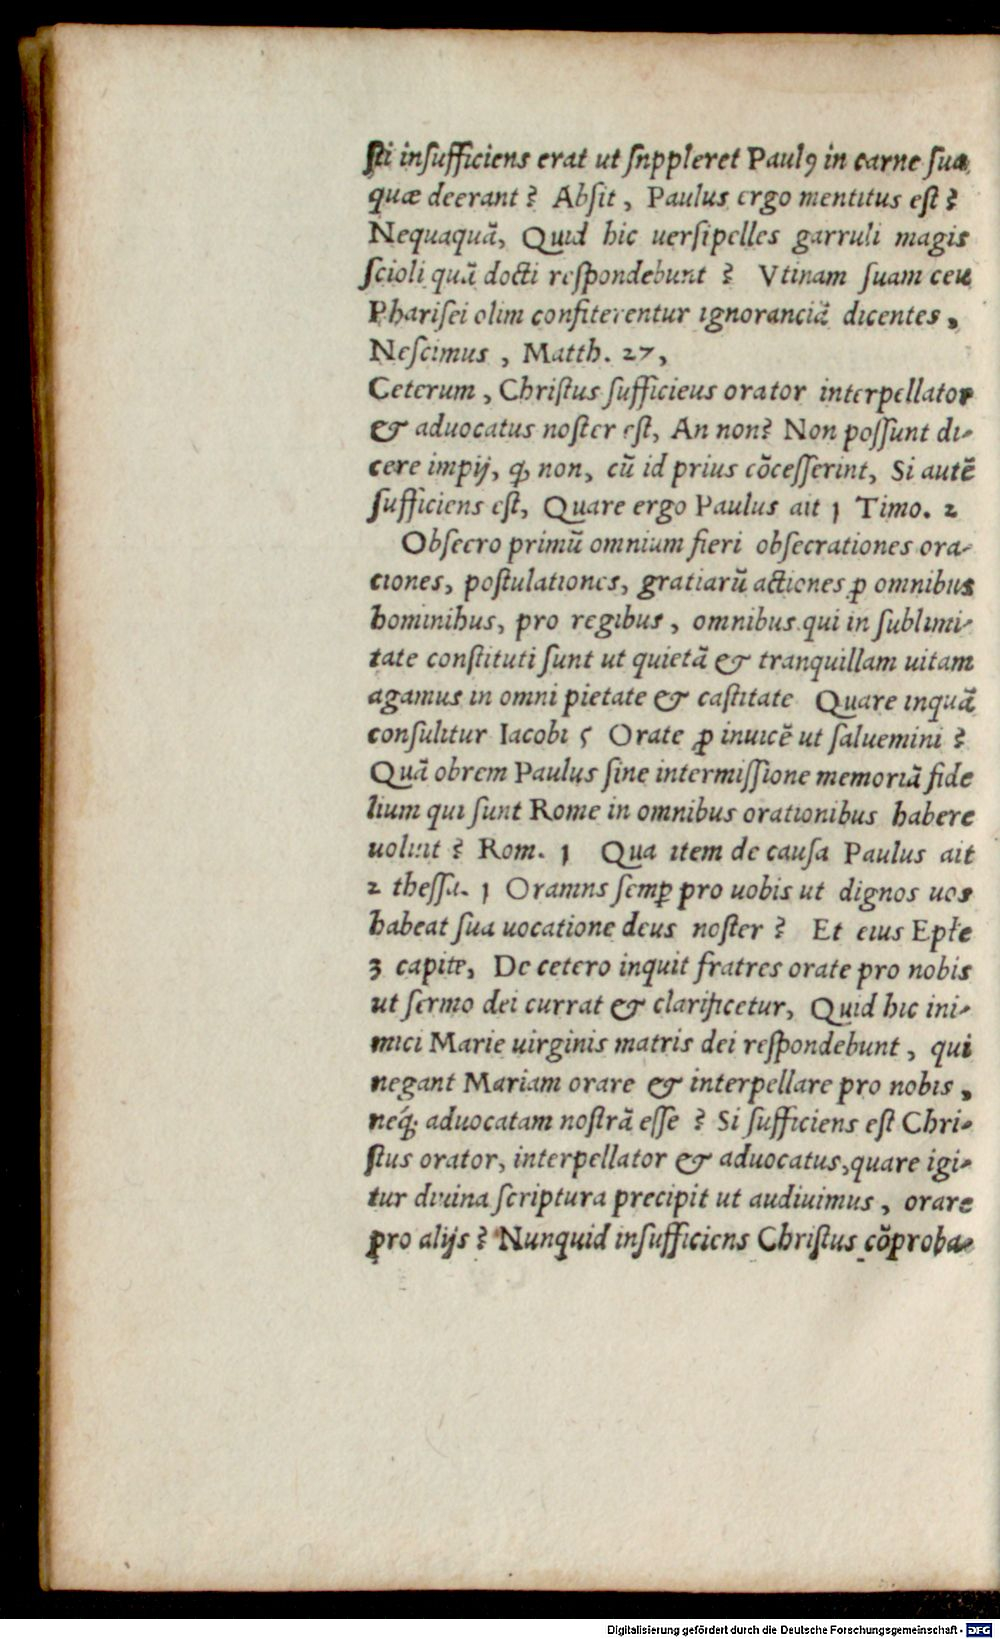 ſti inſufficiens erat ut ſnppleret Paulꝯ in carne ſua
quæ deerant? Abſit, Paulus ergo mentitus eſt?
Nequaquā, Quid hic uerſipelles garruli magis
ſcioli quā docti reſpondebunt ? Vtinam ſuam ceu
Phariſei olim confiterentur ignoranciā dicentes,
Neſcimus, Matth. 27,
Ceterum, Chriſtus ſufficieus orator interpellator
& aduocatus noſter eſt, An non? Non poſſunt di-
cere impij, ꝙ non, cū id prius cōceſſerint, Si autē
ſufficiens eſt, Quare ergo Paulus ait 1 Timo. 2
Obſecro primū omnium fieri obſecrationes ora-
ciones, poſtulationes, gratiarū actiones ꝑ omnibus
hominibus, pro regibus, omnibus qui in ſublimi-
tate conſtituti ſunt ut quietā & tranquillam uitam
agamus in omni pietate & caſtitate Quare inquā
conſulitur Iacobi 5 Orate ꝓ inuicē ut ſaluemini ?
Quā obrem Paulus ſine intermiſſione memoriā fide
lium qui ſunt Rome in omnibus orationibus habere
uoluit ? Rom. 1 Qua item de cauſa Paulus ait
2 theſſa. 1 Oramns ſemꝑ pro uobis ut dignos uos
habeat ſua uocatione deus noſter ? Et eius Epłe
3 capite, De cetero inquit fratres orate pro nobis
ut ſermo dei currat & clarificetur, Quid hic ini-
mici Marie uirginis matris dei reſpondebunt, qui
negant Mariam orare & interpellare pro nobis,
neq́; aduocatam noſtrā eſſe ? Si ſufficiens eſt Chri-
ſtus orator, interpellator & aduocatus, quare igi-
tur diuina ſcriptura precipit ut audiuimus, orare
pro alijs ? Nunquid inſufficiens Chriſtus cōproba-
Digitalisierung gefördert durch die Deutsche Forschungsgemeinschaft - DFG